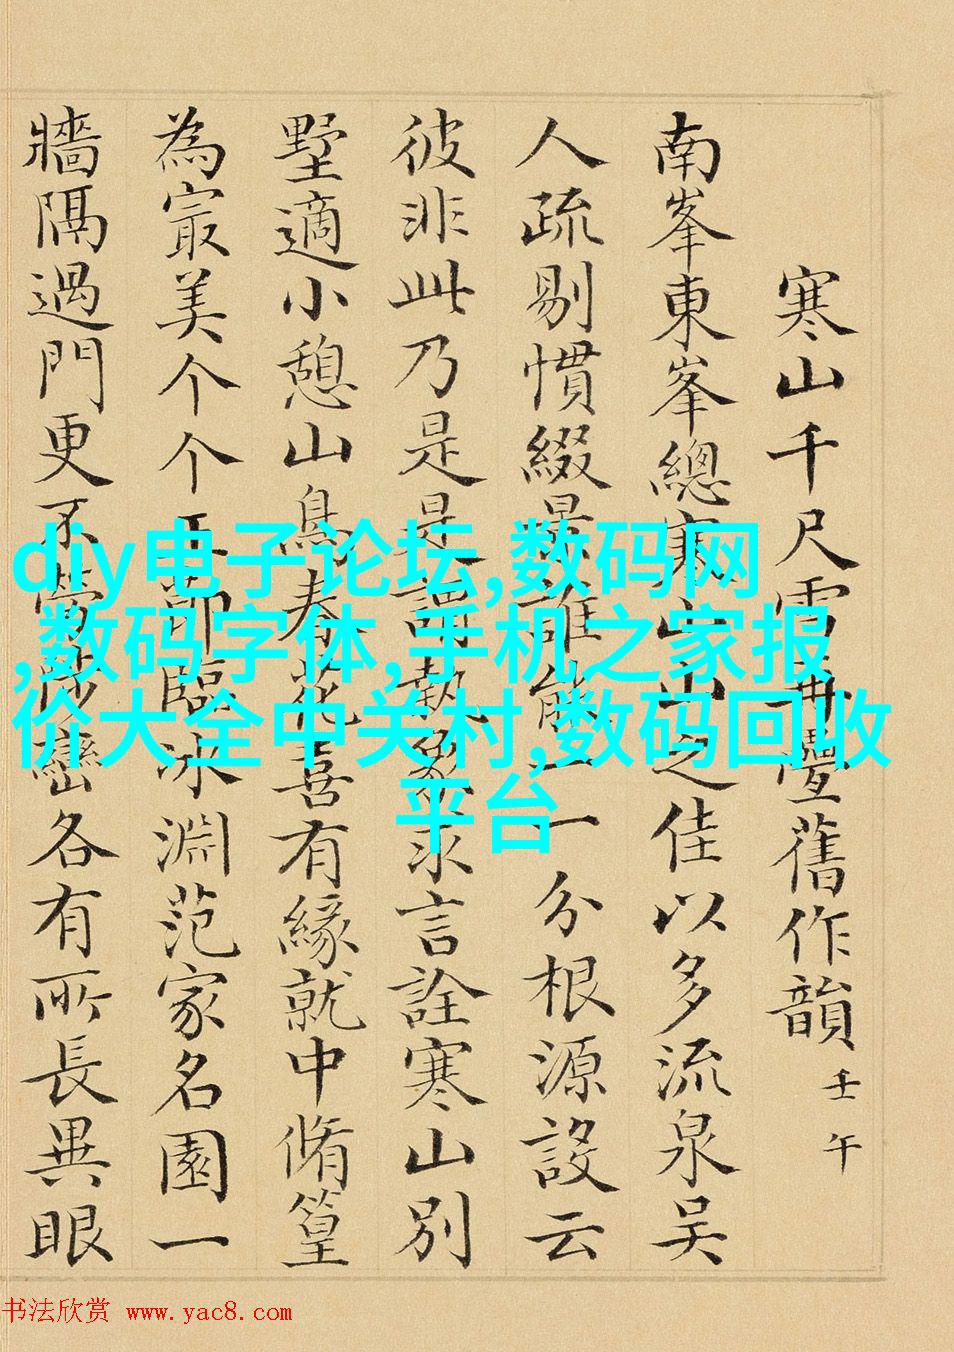 寒山千尺雪再疊舊作韻 壬午
南峯東峯總寒山山之佳以多流泉吳
人疏剔慣綴景誰能一一分根源設云
彼非此乃是是謂執象求言詮寒山別
墅適小憩山鳥春花喜有緣就中脩篁
為冣美个个玉節臨冰淵范家名園一
牆隔過門更不勞陟巒各有所長異眼
diy电子论坛,数码网
,数码字体,手机之家报
价大全中关村,数码回收
平台
书法欣赏 www.yac8.com